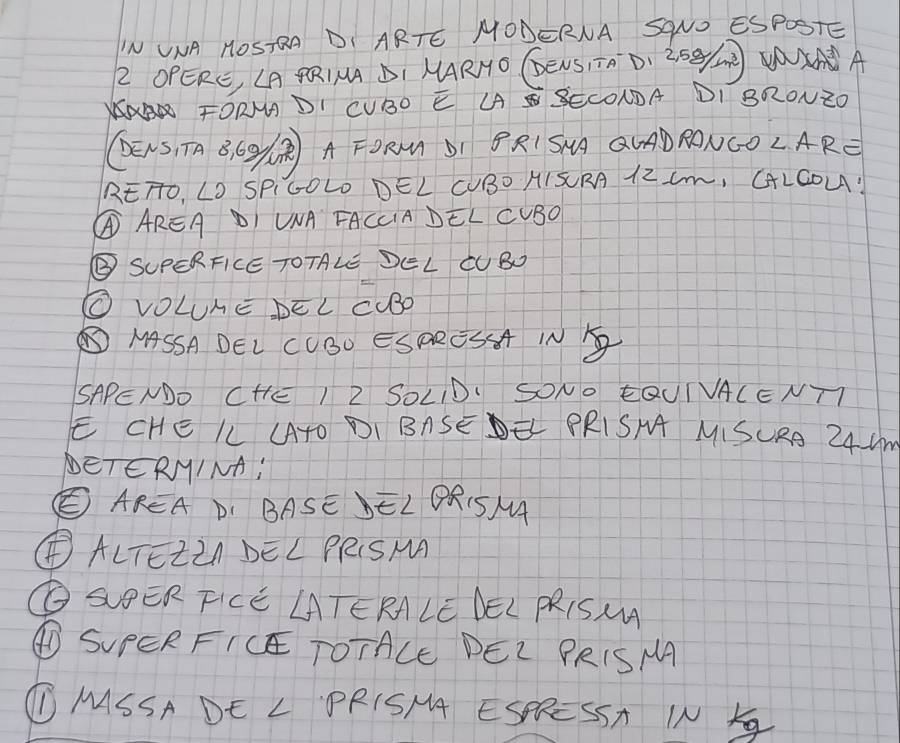 IN UNA MOSTRA DI ARTE MODERNA SONO ESPOSTE
2 OPERE, LA PRIMA DI MARMO (DENSITA' DI 2,5g/cm³) A
FORMA DI CUBO E LA SECONDA DI BRONZO
(DENSITA 8,6g/cm³) A FORMA DI PRISMA QUADRANGOLARE
RETTO. LO SPIGOLO DEL CUBO MISURA 12 cm, CALCOLA:
A AREA DI UNA FACCIA DEL CUBO
B SUPERFICE TOTALE DEL CUBO
C VOLUME DEL CUBO
D MASSA DEL CUBO ESPRESSA IN Kg
SAPENDO CHE I 2 SOLIDI SONO EQUIVALENTI
E CHE IL LATO DI BASE DEL PRISMA MISURA 24 cm
DETERMINA:
E AREA DI BASE DEL PRISMA
F ALTEZZA DEL PRISMA
G SUPERFICE LATERALE DEL PRISMA
H SUPERFICE TOTALE DEL PRISMA
I MASSA DEL PRISMA ESPRESSA IN Kg